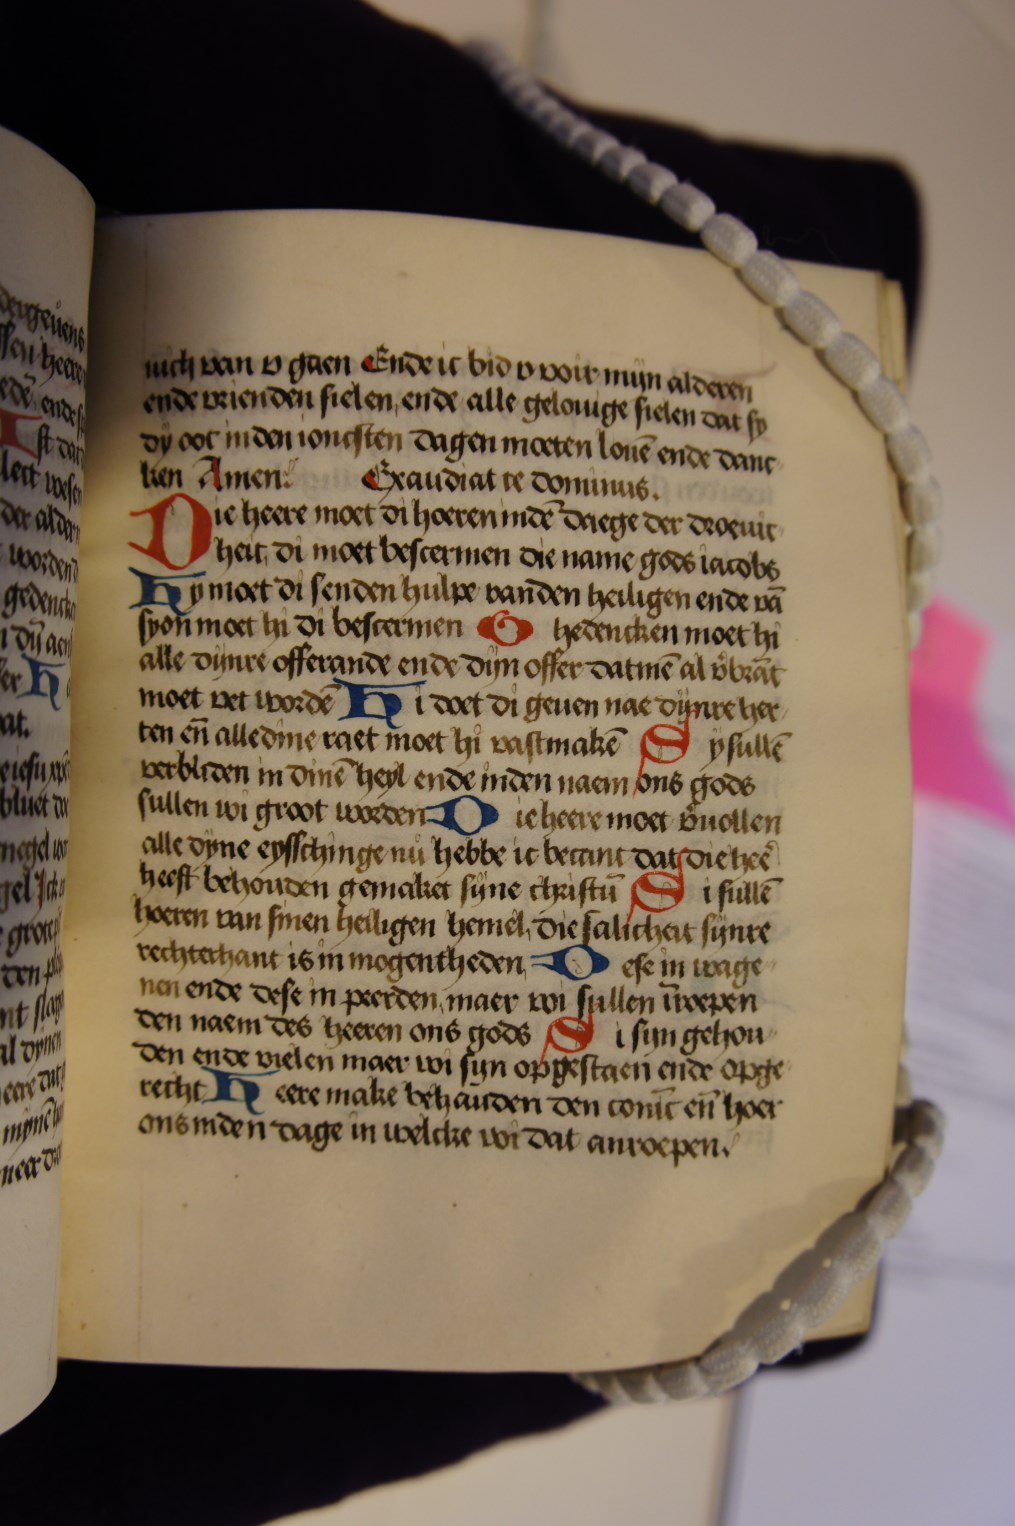 nich van v gaen Ende ic bid v voir mijn alderen
ende vrienden sielen, ende alle gelouige sielen dat sy
dy ooc inden ioncsten dagen moeten louē ende danc
ken Amen. Exaudiat te dominus.
Die heere moet di hoeren indē daege der droeuic
heit, di moet bescermen die name gods iacobs
Hy moet di senden hulpe vanden heiligen ende vā
syon moet hi di bescermen Ghedencken moet hi
alle dijnre offerande ende dijn offer datmē al v̄brāt
moet vet wordē Hi doet di geuen nae dijnre her
ten en̄ alle dine raet moet hi vastmakē Sy sullē
verbliden in dinē heyl ende inden naem ons gods
sullen wi groot worden Die heere moet v̄uollen
alle dyne eysschinge nu hebbe ic becant dat die heē
heeft behouden gemaket sijne christū Si sullē
hoeren van sinen heiligen hemel, die salicheit sijnre
rechterhant is in mogentheden, Dese in wage
nen ende dese in peerden, maer wi sullen āroepen
den naem des heeren ons gods Si sijn gehou
den ende vielen maer wi sijn opgestaen ende opge
recht, Heere make behauden den conīc en̄ hoer
ons inden dage in welcke wi dat anroepen.